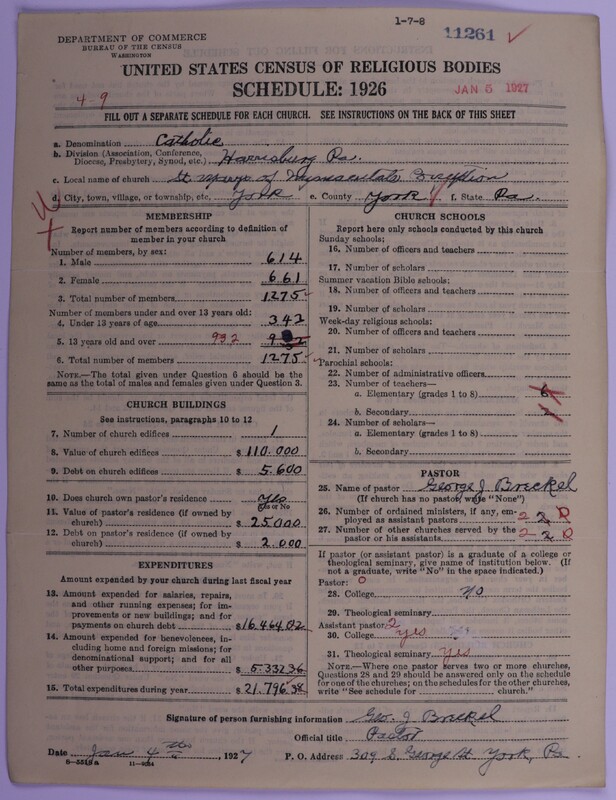 1-7-8
DEPARTMENT OF COMMERCE
BUREAU OF THE CENSUS
WASHINGTON
11261 ✓
UNITED STATES CENSUS OF RELIGIOUS BODIES
SCHEDULE: 1926
JAN 5 1927
4-9
FILL OUT A SEPARATE SCHEDULE FOR EACH CHURCH. SEE INSTRUCTIONS ON THE BACK OF THIS SHEET
a. Denomination Catholic
b. Division (Association, Conference, Diocese, Presbytery, Synod, etc.) Harrisburg Pa.
c. Local name of church St Marys of Immaculate
d. City, town, village, or township, etc. York e. County York f. State Pa.
MEMBERSHIP
Report number of members according to definition of
member in your church
Number of members, by sex:
1. Male 614
2. Female 661
3. Total number of members 1275
Number of members under and over 13 years old:
4. Under 13 years of age 342
5. 13 years old and over 932
6. Total number of members 1275
NOTE.—The total given under Question 6 should be
same as the total of males and females given under Question 3.
CHURCH BUILDINGS
See instructions, paragraphs 10 to 12
7. Number of church edifices 1
8. Value of church edifices $ 110.000
9. Debt on church edifices $ 5.600
10. Does church own pastor's residence yes
Yes or No
11. Value of pastor's residence (if owned by
church) $ 25000
12. Debt on pastor's residence (if owned by
church) $ 2.000
EXPENDITURES
Amount expended by your church during last fiscal year
13. Amount expended for salaries, repairs,
and other running expenses; for im-
provements or new buildings; and for
payments on church debt $16.464.02
14. Amount expended for benevolences, in-
cluding home and foreign missions; for
denominational support; and for all
other purposes $ 5.332.36
15. Total expenditures during year $ 21.796.38
CHURCH SCHOOLS
Report here only schools conducted by this church
Sunday schools:
16. Number of officers and teachers
17. Number of scholars
Summer vacation Bible schools:
18. Number of officers and teachers
19. Number of scholars
Week-day religious schools:
20. Number of officers and teachers
21. Number of scholars
Parochial schools:
22. Number of administrative officers
23. Number of teachers—
a. Elementary (grades 1 to 8) 6
b. Secondary 2
24. Number of scholars—
a. Elementary (grades 1 to 8)
b. Secondary
PASTOR
25. Name of pastor George J Breckel
(If church has no pastor, write "None")
26. Number of ordained ministers, if any, em-
ployed as assistant pastors 2 2
27. Number of other churches served by the
pastor or his assistants 2 2
If pastor (or assistant pastor) is a graduate of a college or
theological seminary, give name of institution below. (If
not a graduate, write "No" in the space indicated.)
Pastor: 0
28. College no
29. Theological seminary
Assistant pastor 2
30. College yes
31. Theological seminary yes
NOTE.—Where one pastor serves two or more churches,
Questions 28 and 29 should be answered only on the schedule
for one of the churches; on the schedules for the other churches,
write "See schedule for church."
Signature of person furnishing information Geo. J Breckel
Official title Pastor
Date Jan 4th, 1927 P. O. Address 309 S. George St. York, Pa
8-5518a 11-9064